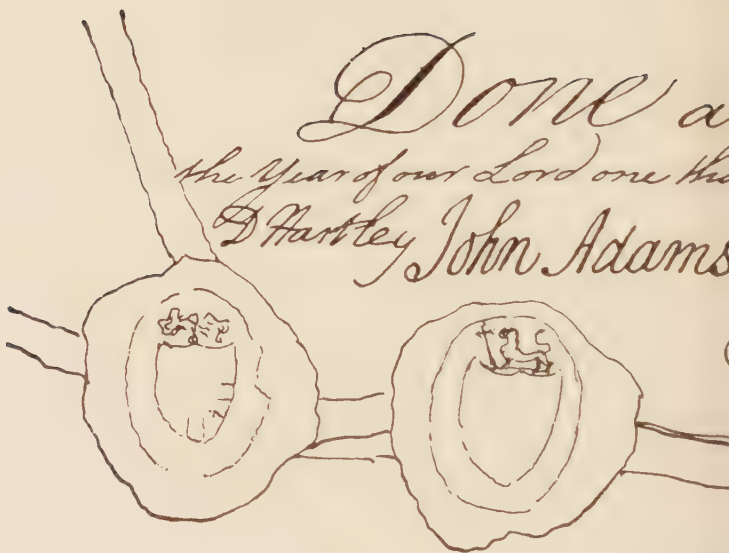 Done a
the Year of our Lord one tho
D Hartley John Adams